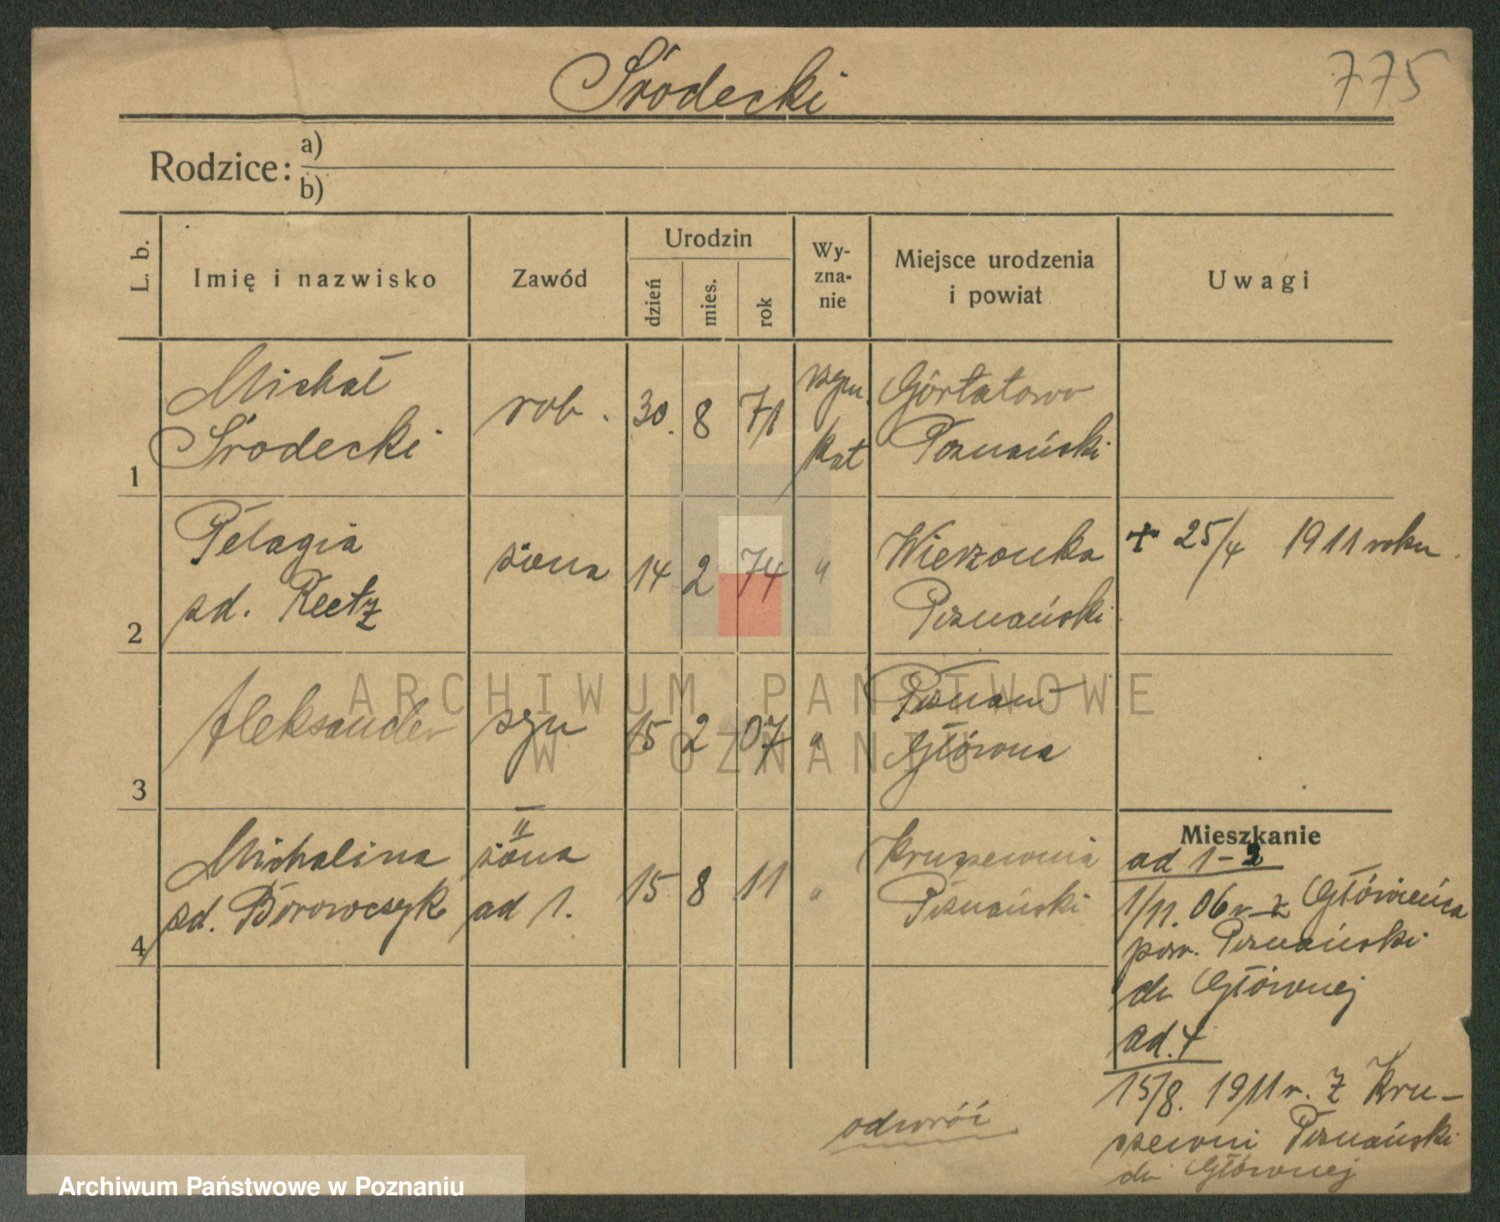 Środecki
775
Rodzice: a)
b)
L. b.
Imię i nazwisko
Zawód
Urodzin
dzień
mies.
rok
Wy-
zna-
nie
Miejsce urodzenia
i powiat
Uwagi
1
Michał
Środecki
rob.
30. 8 71
rzym.
kat
Gortatowo
Poznański
2
Pelagia
zd. Reetz
żona
14 2 74
"
Wierzonka
Poznański
+ 25/4 1911 roku.
3
Aleksander
syn
15 2 07
"
Poznań
Główna
4
Michalina
zd. Borowczyk
II
żona
ad 1.
15 8 11
"
Kruszewnia
Poznański
Mieszkanie
ad 1-2
1/11. 06 r. z Główieńca
pow. Poznański
do Głównej
ad. 4
15/8. 1911 r. z Kru-
szewni Poznański
do Głównej
odwróć
ARCHIWUM PAŃSTWOWE
W POZNANIU
Archiwum Państwowe w Poznaniu